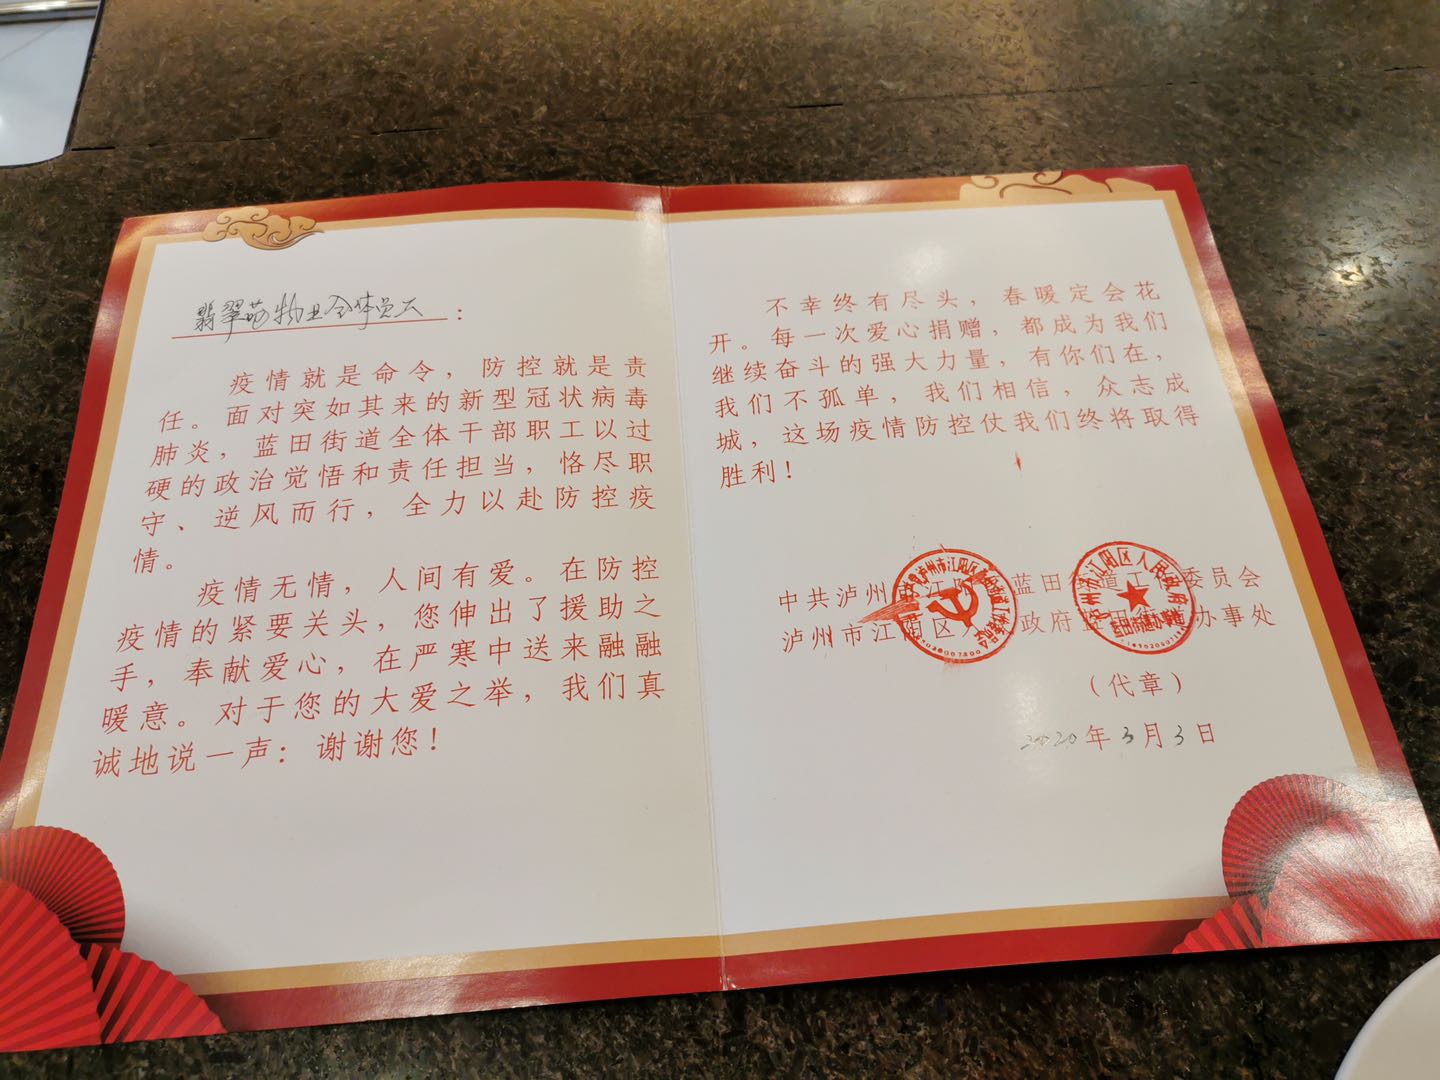 翡翠苑物业全体员工：
疫情就是命令，防控就是责
任。面对突如其来的新型冠状病毒
肺炎，蓝田街道全体干部职工以过
硬的政治觉悟和责任担当，恪尽职
守、逆风而行，全力以赴防控疫
情。
疫情无情，人间有爱。在防控
疫情的紧要关头，您伸出了援助之
手，奉献爱心，在严寒中送来融融
暖意。对于您的大爱之举，我们真
诚地说一声：谢谢您！
不幸终有尽头，春暖定会花
开。每一次爱心捐赠，都成为我们
继续奋斗的强大力量，有你们在，
我们不孤单，我们相信，众志成
城，这场疫情防控仗我们终将取得
胜利！
中共泸州 江阳 蓝田 道工 委员会
泸州市江阳区人 政府蓝田街 办事处
（代章）
2020年3月3日